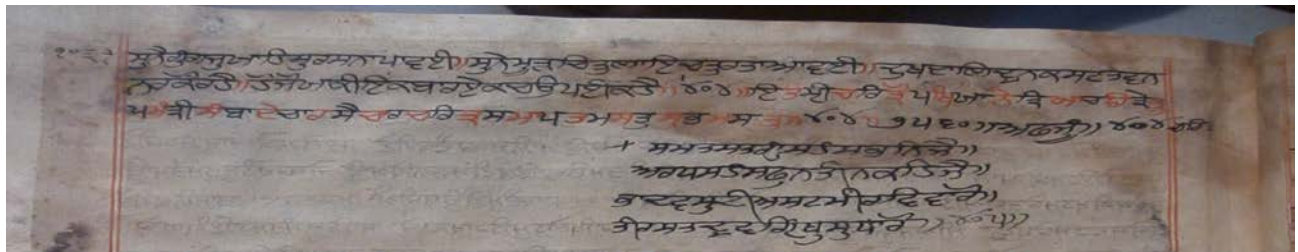 ੧੦੬੨ ਸੁਨੈ ਗੁੰਗ ਜੁ ਯਾਹਿ ਸੁ ਰਸਨਾ ਪਾਵਈ॥ ਸੁਨੈ ਮੂੜ ਚਿਤੁ ਲਾਇ ਚਤੁਰਤਾ ਆਵਈ॥ ਦੂਖ ਨ
ਨਰ ਕੇ ਰਹੈ॥ ਹੋ ਜੋ ਯਾਕੀ ਇਕ ਬਾਰ ਚੌਪਈ ਕਹੈ॥੪੦੪॥ ਇਤਿ ਸ੍ਰੀ ਚਰਿਤ੍ਰ ਪਖ੍ਯਾਨੇ ਤ੍ਰਿਆ ਚਰਿਤ੍ਰੇ
ਮੰਤ੍ਰੀ ਸੰਬਾਦੇ ਚਾਰ ਸੈ ਚਾਰ ਚਰਿਤ੍ਰ ਸਮਾਪਤਮ ਸਤੁ ਸੁਭਮ ਸਤੁ ੪੦੪॥੭੫੬੦॥ਅਫਜੂੰ॥
ਸਤ੍ਰਹ ਸਹਸ ਭਨਿਜੈ॥
ਅਰਧ ਸਹਸ ਫੁਨਿ ਤੀਨ ਕਹਿਜੈ॥
ਭਾਦ੍ਰਵ ਸੁਦੀ ਅਸਟਮੀ ਰਵਿ ਵਾਰੋ॥
ਤੀਰ ਸਤਦ੍ਰਵ ਗ੍ਰਿੰਥ ਸੁਧਾਰੋ॥੪੦੫॥